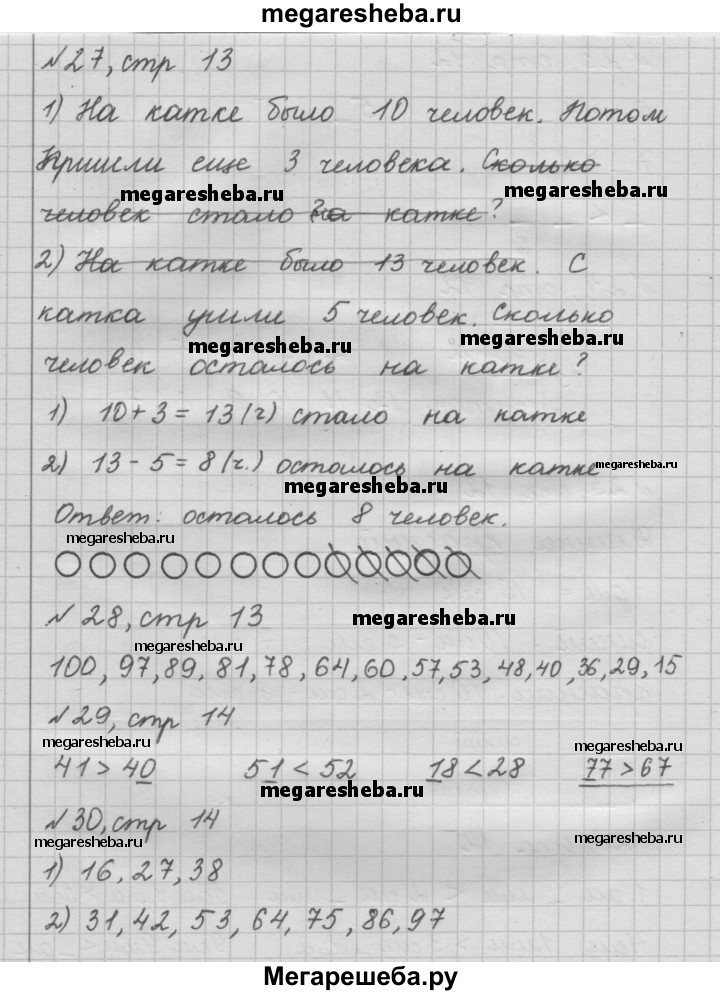 megaresheba.ru
№27, стр 13
1) На катке было 10 человек. Потом
Пришли еще 3 человека. Сколько
megaresheba.ru megaresheba.ru
человек стало на катке?
2) На катке было 13 человек. С
катка ушли 5 человек. Сколько
megaresheba.ru megaresheba.ru
человек осталось на катке?
1) 10+3=13(ч) стало на катке
2) 13-5=8(ч.) осталось на катке
megaresheba.ru
megaresheba.ru
Ответ: осталось 8 человек.
megaresheba.ru
№28, стр 13
megaresheba.ru
megaresheba.ru
100, 97, 89, 81, 78, 64, 60, 57, 53, 48, 40, 36, 29, 15
№29, стр 14
megaresheba.ru megaresheba.ru
41>40 51<52 18<28 77>67
megaresheba.ru
№30, стр 14
megaresheba.ru megaresheba.ru
1) 16, 27, 38
2) 31, 42, 53, 64, 75, 86, 97
Мегарешеба.ру